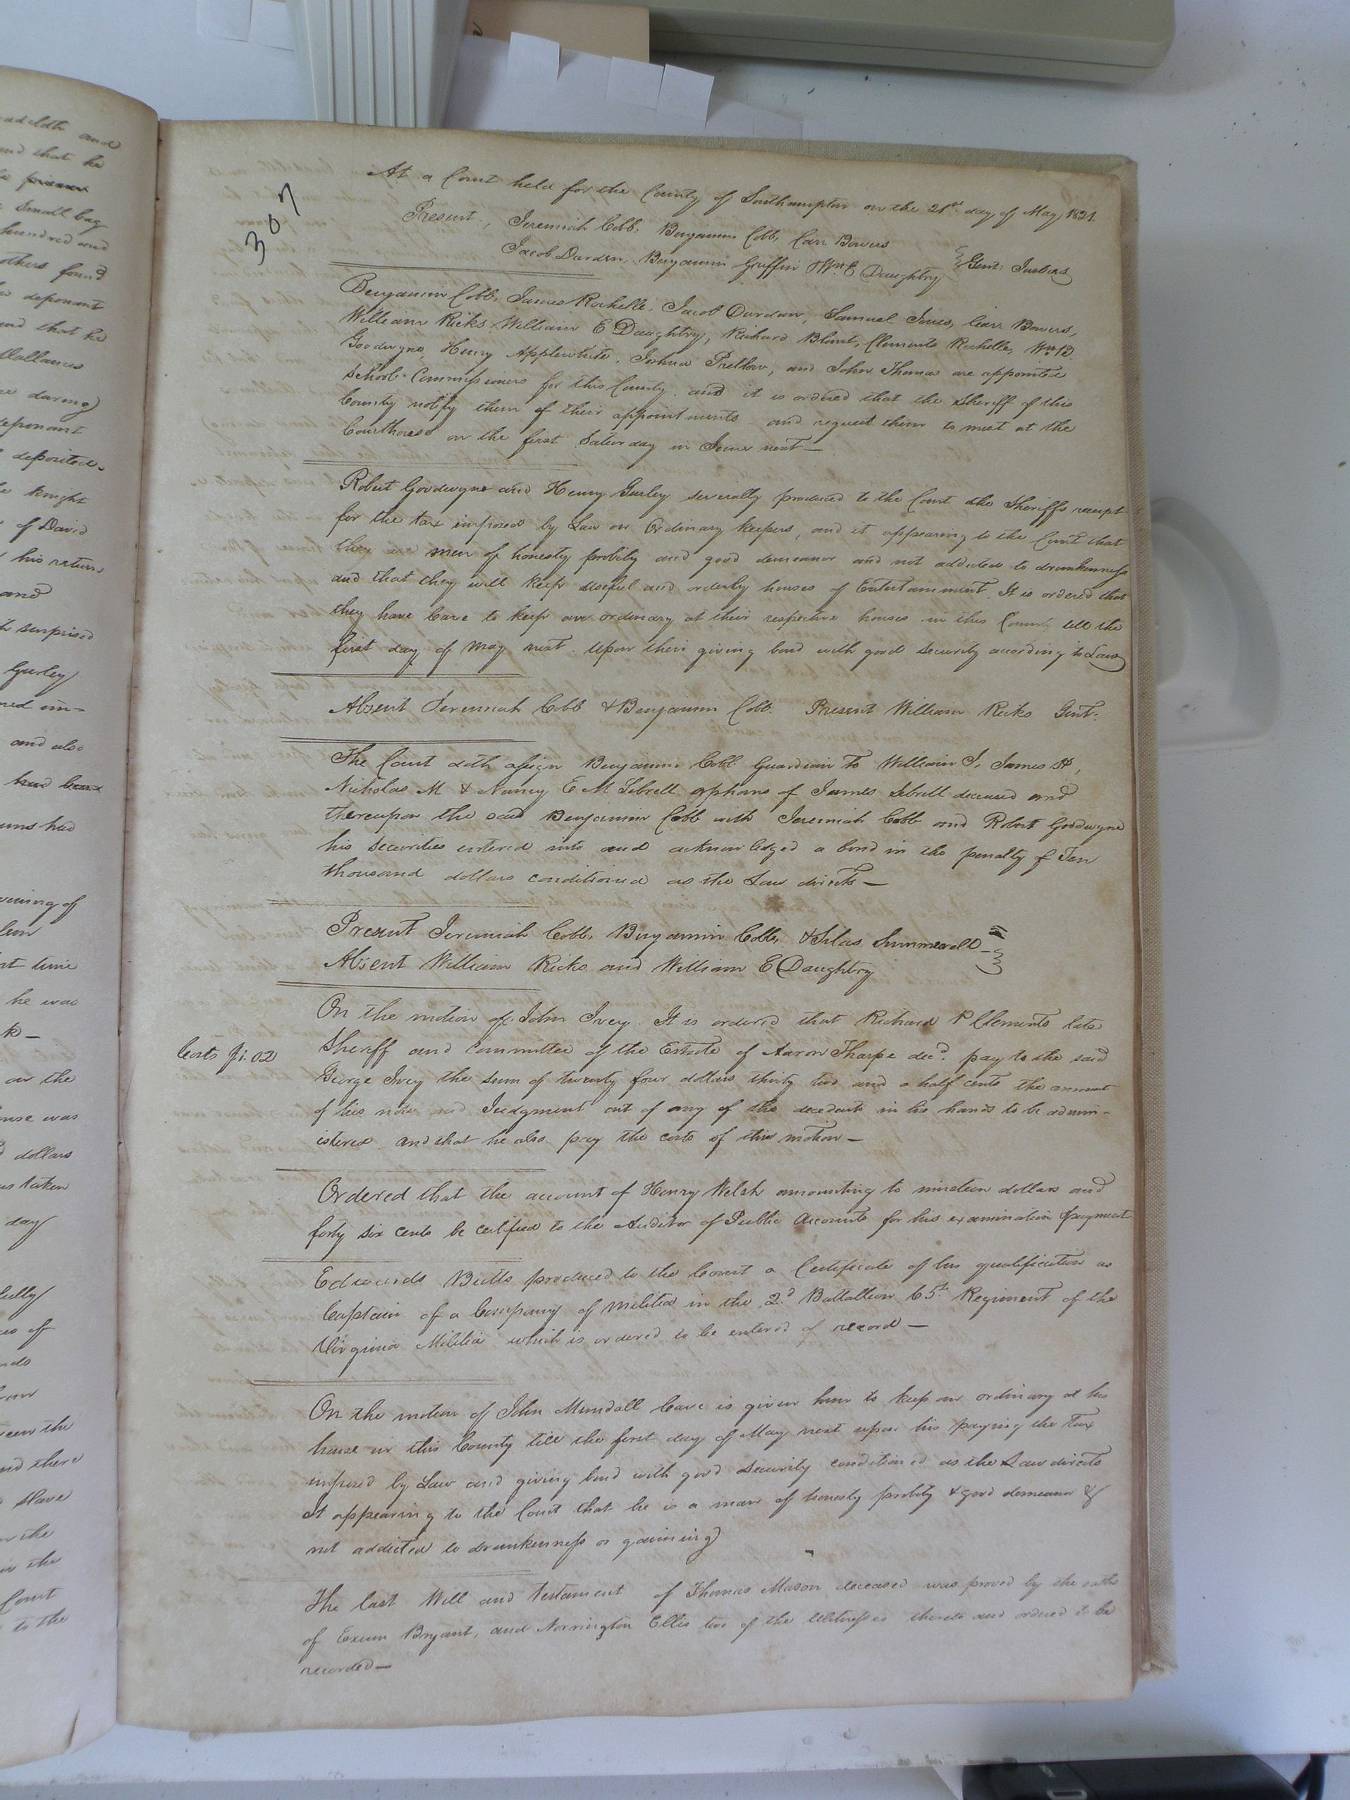 307
At a Court held for the County of Southampton on the 21st day of May 1821
Present, Jeremiah Cobb, Benjamin Cobb, Carr Bowers
Jacob Darden, Benjamin Griffin & Wm E Daughtry Gent. Justices
Benjamin Cobb, James Rochelle, Jacob Darden, Samuel Carr Bowers,
William Ricks William E Daughtry, Richard Blunt, Clements Rochelle, Wm B
Goodwyne, Henry Applewhite, Joshua Pretlow, and John Thomas are appointed
School Commissioners for this County and it is ordered that the Sheriff of this
County notify them of their appointments and request them to meet at the
Courthouse on the first Saturday in June next—
Robert Goodwyne and Henry Gurley severally produced to the Court the Sheriffs receipt
for the tax imposed by Law on Ordinary keepers, and it appearing to the Court that
they are men of honesty probity and good demeanor and not addicted to drunkenness
and that they will keep useful and orderly houses of Entertainment. It is ordered that
they have leave to keep an ordinary at their respective houses in this County till the
first day of May next upon their giving bond with good security according to Law
Absent Jeremiah Cobb & Benjamin Cobb. Present William Ricks Gent.
The Court doth assign Benjamin Cobb Guardian to William J, James H,
Nicholas M & Nancy E M Sebrell orphans of James Sebrell deceased and
thereupon the said Benjamin Cobb with Jeremiah Cobb and Robert Goodwyne
his securities entered into and acknowledged a bond in the penalty of Ten
thousand dollars conditioned as the Law directs—
Present Jeremiah Cobb, Benjamin Cobb, & Silas Summerell
Absent William Ricks and William E Daughtry
On the motion of John Ivey. It is ordered that Richard P Clements late
Costs 02
Sheriff and Committee of the Estate of Aaron Tharpe decd. pay to the said
George Ivey the sum of twenty four dollars thirty two and a half cents the amount
of his note and Judgment out of any of the decedents in his hands to be admin-
istered and that he also pay the costs of this motion—
Ordered that the account of Henry Welsh amounting to nineteen dollars and
forty six cents be certified to the Auditor of Public Accounts for his examination & payment
Edwards Butts produced to the Court a Certificate of his qualification as
Captain of a Company of Militia in the 2d Battalion 65th Regiment of the
Virginia Militia which is ordered to be entered of record—
On the motion of John Mundall leave is given him to keep an ordinary at his
house in this County till the first day of May next upon his paying the tax
imposed by Law and giving bond with good security conditioned as the Law directs
It appearing to the Court that he is a man of honesty probity & good demeanor &
not addicted to drunkenness or gaming
The last Will and Testament of Thomas Mason deceased was proved by the oaths
of Exum Bryant, and Norrington Ellis two of the Witnesses thereto and ordered to be
recorded—